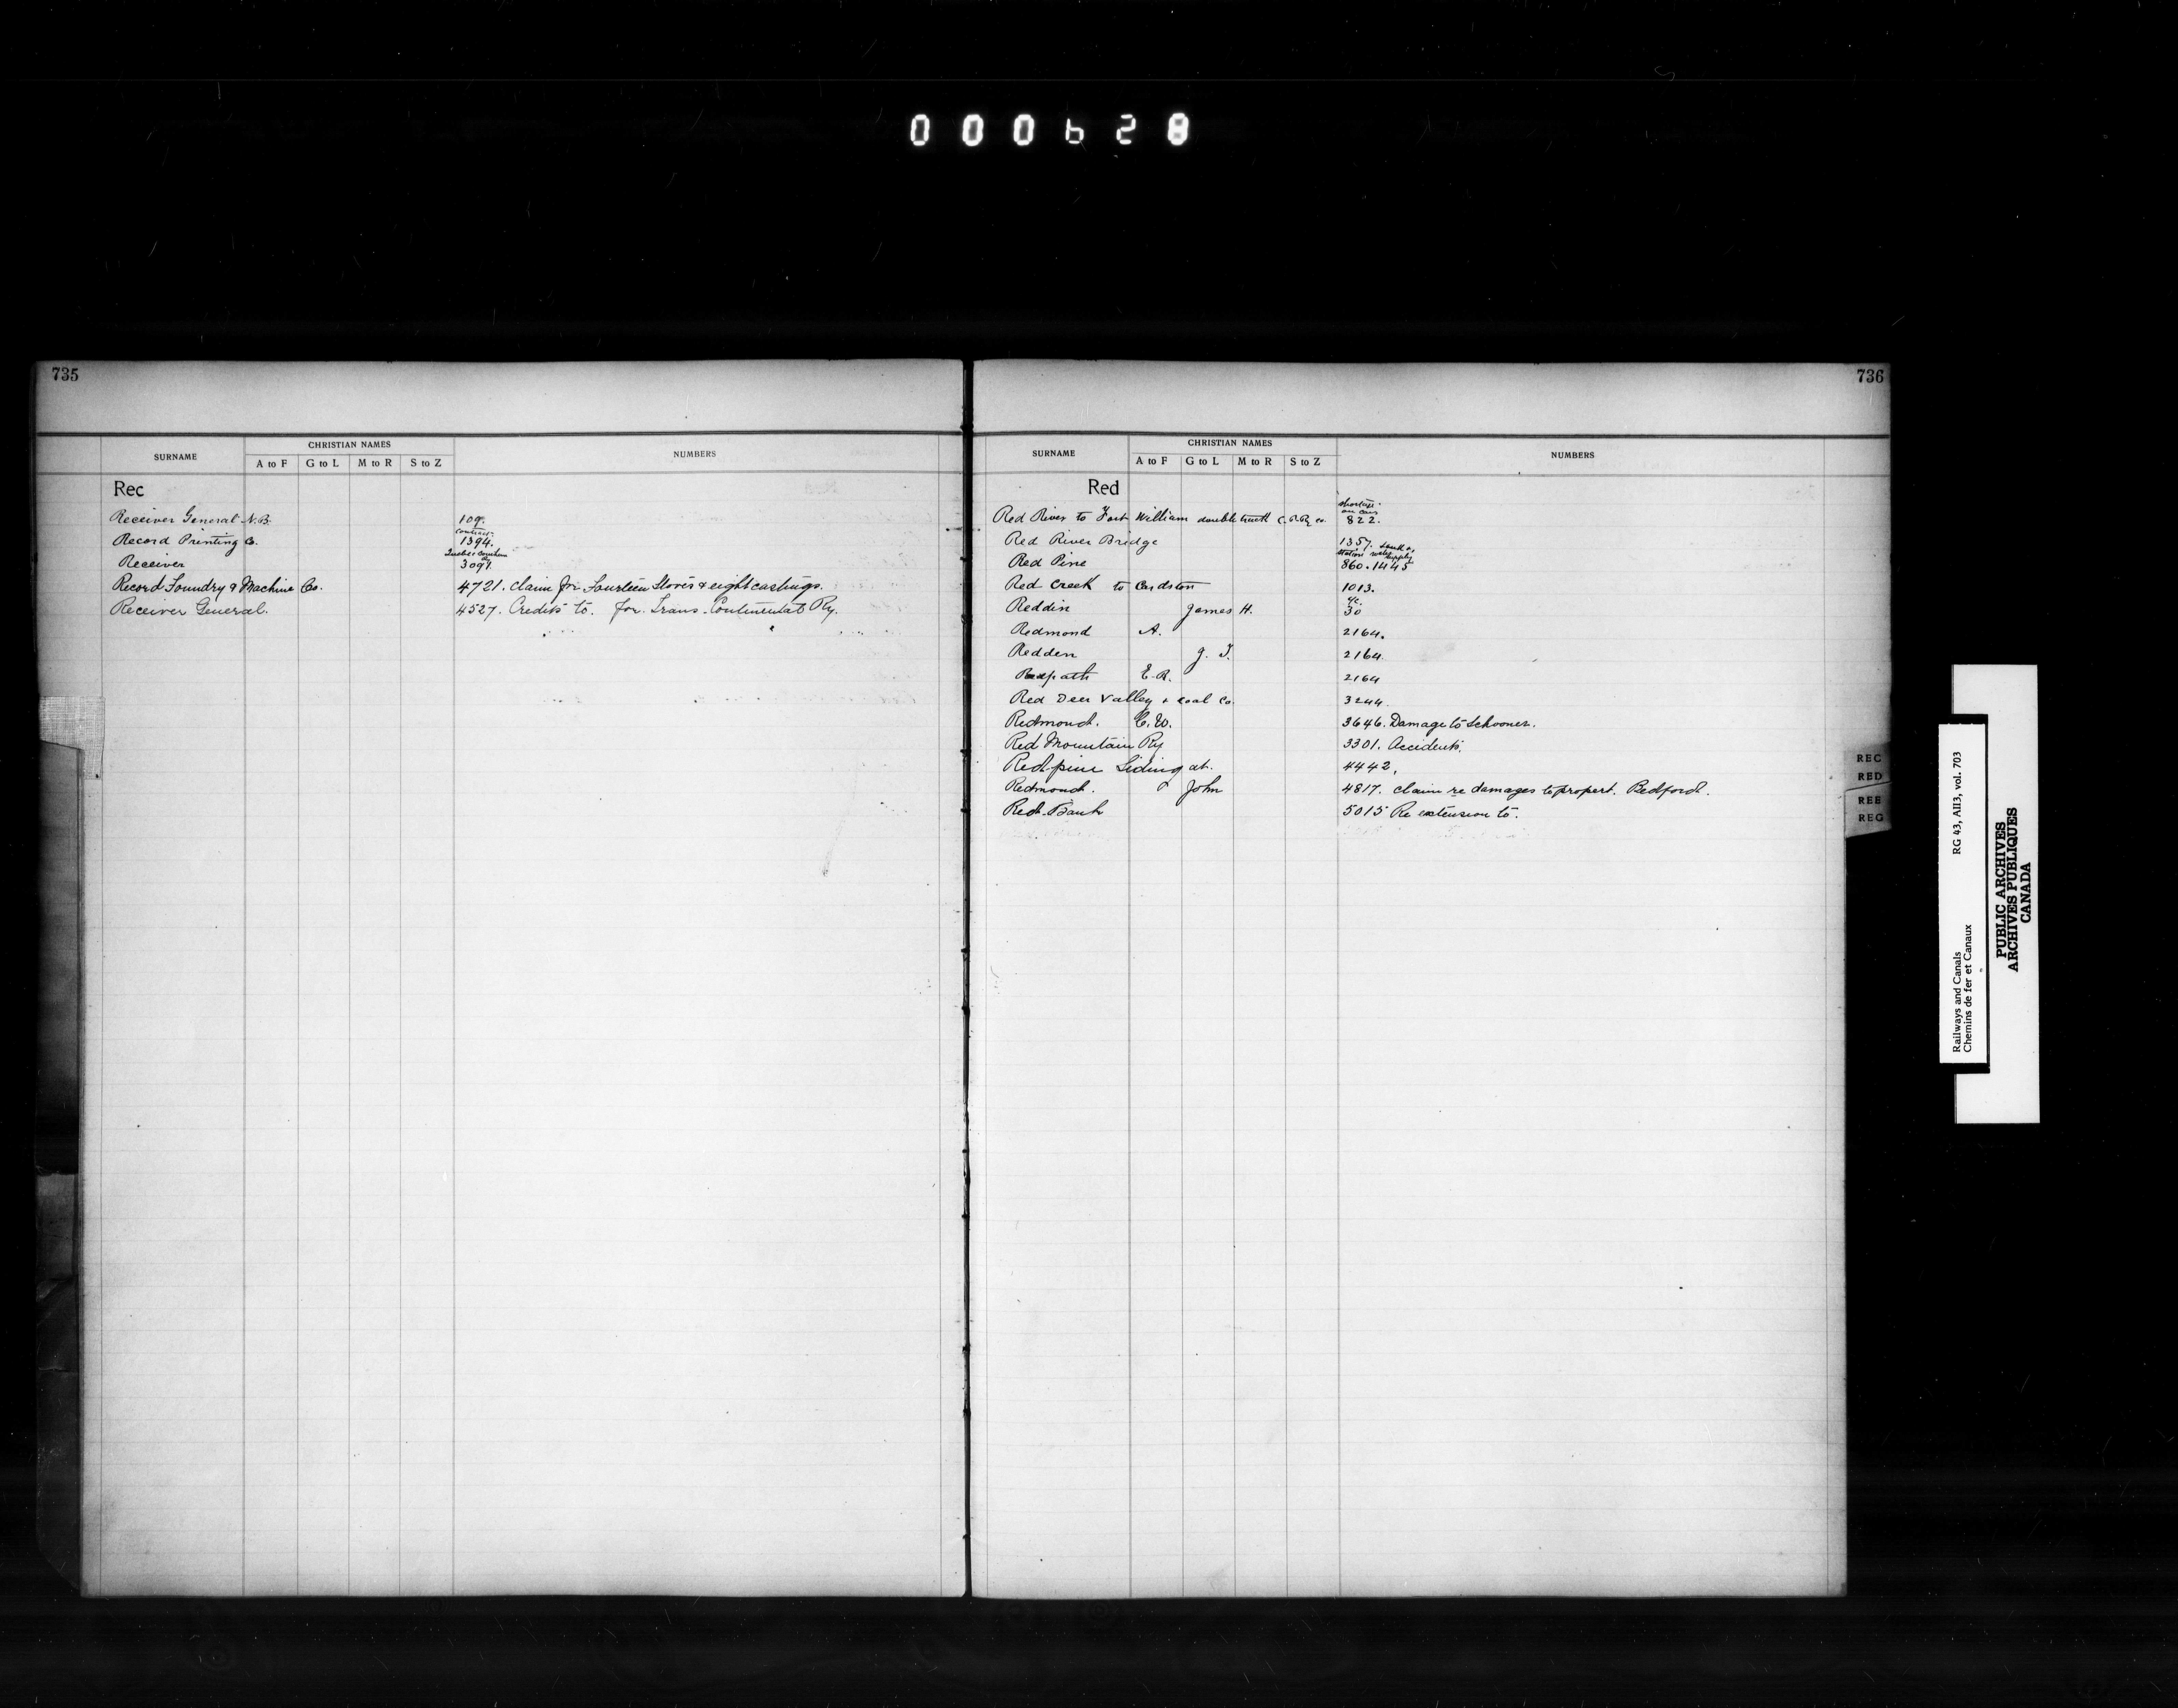 000628
735
SURNAME CHRISTIAN NAMES NUMBERS
A to F G to L M to R S to Z
Rec
Receiver General N.B. 109.
Contract.
Record Printing Co. 1394.
Quebec Southern
Receiver 3097
Record Foundry & Machine Co. 4721. Claim for Fourteen Stoves & eight castings.
Receiver General. 4527. Credits to. for. Trans-Continental Ry.
736
SURNAME CHRISTIAN NAMES NUMBERS
A to F G to L M to R S to Z
Red
shortage
on cars
Red River to Fort William double track C.P.Ry co. 822.
Red River Bridge 1357.
station water supply
Red Pine 860. 1445
Red Creek to Cardston 1013.
Reddin James H. 30
Redmond A. 2164.
Redden G. T. 2164.
Redpath E.R. 2164
Red Deer Valley & Coal Co. 3244.
Redmond. C.W. 3646. Damage to Schooner.
Red Mountain Ry 3301. Accidents.
Red-pine Siding at. 4442.
Redmond. John 4817. Claim re damages to propert. Bedford.
Red-Bank 5015 Re extension to.
REC
RED
REE
REG
Railways and Canals RG 43, AII3, vol. 703
Chemins de fer et Canaux
PUBLIC ARCHIVES
ARCHIVES PUBLIQUES
CANADA